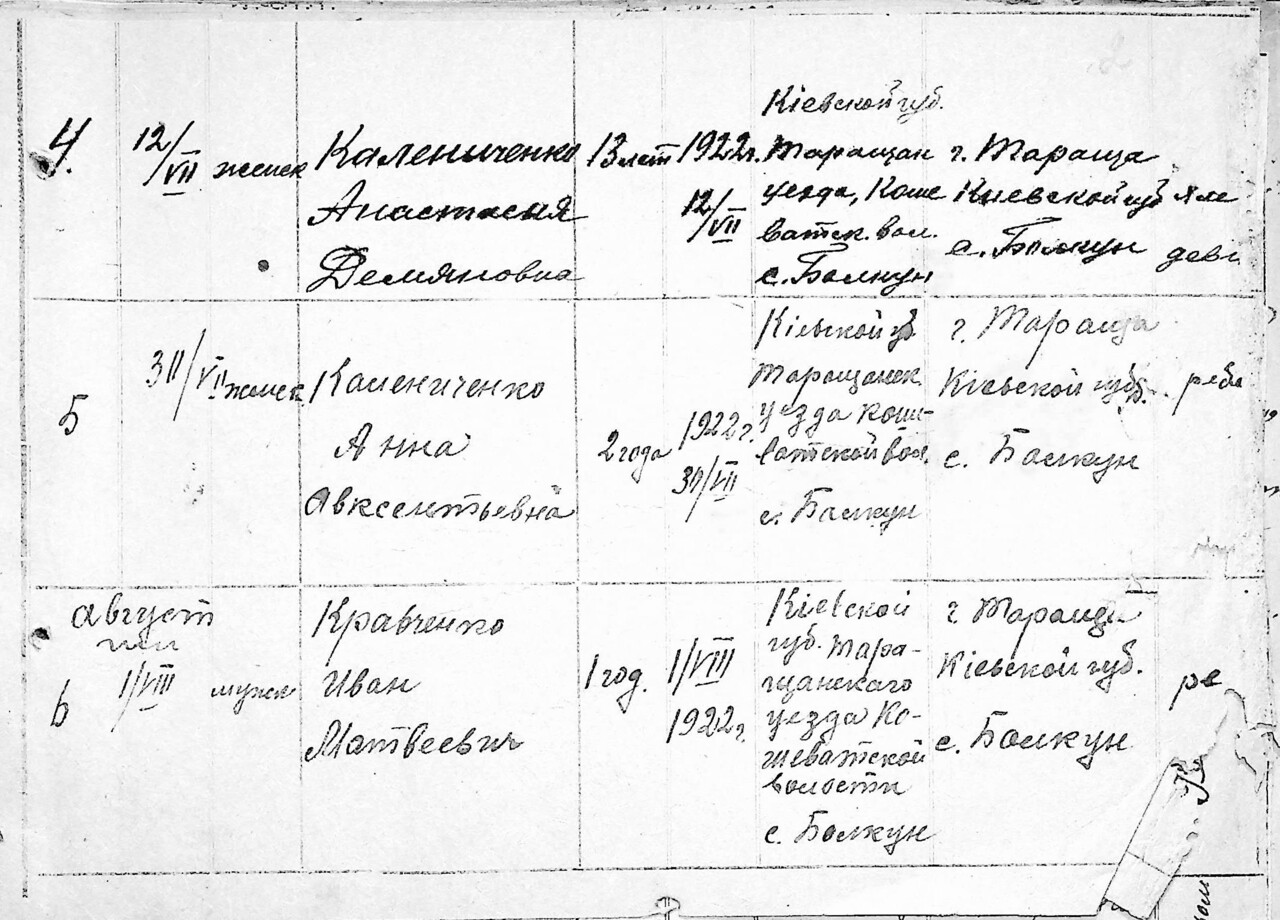 4.
12/VII
женск
Калениченко
Анастасия
Демяновна
13 лет
1922г.
12/VII
Кіевской губ.
Таращан
уезда, Коше
ватск. вол.
с. Болкун
г. Тараща
Киевской губ
с. Болкун
деви
5
30/VII
женск
Калениченко
Анна
Авксентьевна
2 года
1922г.
30/VII
Кіевской губ
Таращанск.
уезда коши-
ватской вол.
с. Балкун
г. Тараща
Кіевской губ.
с. Балкун
реба
август
6
1/VIII
мужск
Кравченко
Иван
Матвеевич
1 год.
1/VIII
1922г.
Кіевской
губ. Тара-
щанскаго
уезда Ко-
шеватской
волости
с. Болкун
г Тараща
Кіевской губ.
с. Болкун
ре